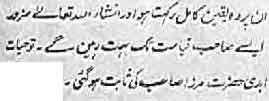 ان پر وہ یقین کامل رکہتا ہو اور انشاء اللہ تعالے ضرور
ایسے صاحب، قیامت تک بہت رہین گے۔ تو حیات
ابدی حضرت مرزا صاحب کی ثابت ہوگئی۔